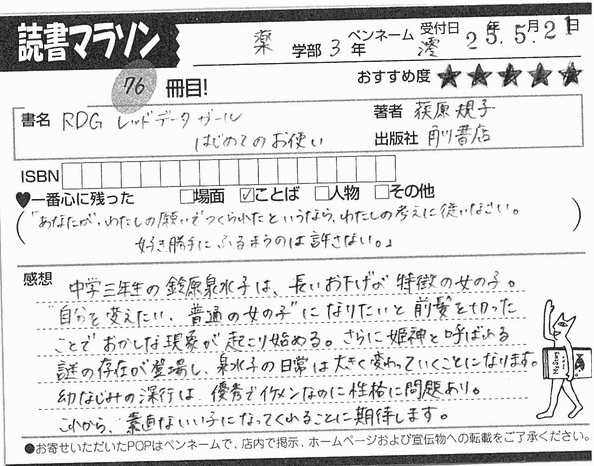 読書マラソン
薬 学部 3 年 ペンネーム 澪 受付日 25年5月21日
76 冊目!
おすすめ度 ★★★★★
書名 RDG レッドデータガール
はじめてのお使い
著者 荻原規子
出版社 角川書店
ISBN
♥一番心に残った □場面 ☑ことば □人物 □その他
(「あなたが、わたしの願いでつくられたというなら、わたしの考えに従いなさい。
好き勝手にふるまうのは許さない。」)
感想 中学三年生の鈴原泉水子は、長いお下げが特徴の女の子。
"自分を変えたい、普通の女の子"になりたいと前髪を切った
ことでおかしな現象が起こり始める。さらに姫神と呼ばれる
謎の存在が登場し、泉水子の日常は大きく変わっていくことになります。
幼なじみの深行は、優秀でイケメンなのに性格に問題あり。
これから、素直ないい子になってくれることに期待します。
●お寄せいただいたPOPはペンネームで、店内で掲示、ホームページおよび宣伝物への転載をご了承ください。